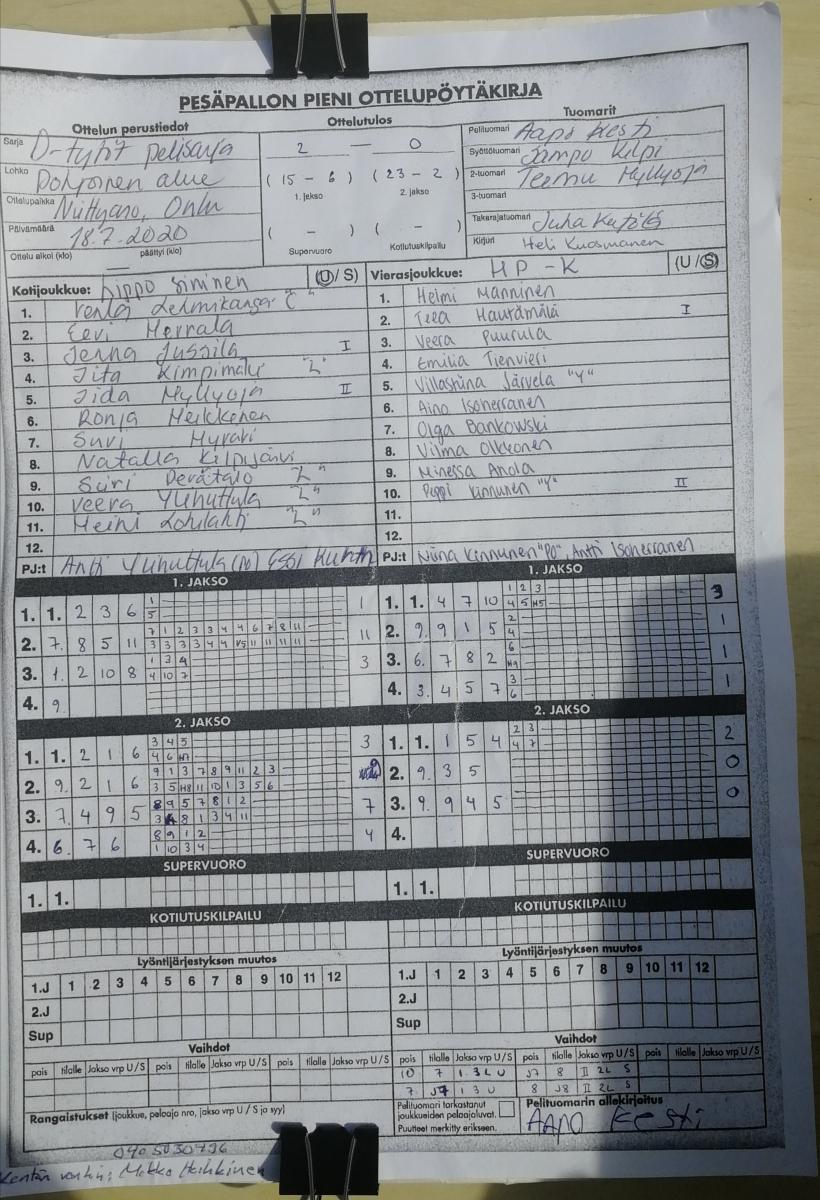 PESÄPALLON PIENI OTTELUPÖYTÄKIRJA
Ottelun perustiedot
Ottelutulos
Tuomarit
Sarja D-tytöt pelisarja
2 — 0
Pelituomari Aapo Kesti
Lohko Pohjoinen alue
(15 - 6) (23 - 2)
Syöttötuomari Sampo Kilpi
1. jakso 2. jakso
2-tuomari Teemu Myllyoja
Ottelupaikka Niittyaro, Oulu
3-tuomari
Päivämäärä 18.7.2020
( - ) ( - )
Takarajatuomari Juha
Ottelu alkoi (klo) päättyi (klo)
Supervuoro Kotiutuskilpailu
Kirjuri Heli Kuosmanen
Kotijoukkue: Lippo Sininen (U/S)
Vierasjoukkue: HP-K (U/S)
1. Venla Lehmikangas "C"
2. Eevi Herrala
3. Jenna Jussila I
4. Iita Kimpimäki "L"
5. Iida Myllyoja II
6. Ronja Heikkonen
7. Suvi
8. Natalia Kilpijärvi
9. Siiri Perätalo "L"
10. Veera Ylihuttula "L"
11. Heini "L"
12.
PJ:t Antti Ylihuttula Essi
1. Helmi Manninen
2. Teea Hautamäki I
3. Veera Puurula
4. Emilia Tienvieri
5. Villastiina Järvelä "Y"
6. Aino Isoherranen
7. Olga Bankowski
8. Vilma Olkkonen
9. Minessa Anola
10. Peppi Kinnunen "Y" II
11.
12.
PJ:t Niina Kinnunen "PO", Antti Isoherranen
1. JAKSO
1. 1. 2 3 6 1
1
5
2. 7. 8 5 11 11
7 1 2 3 3 4 4 6 7 8 11
3 3 3 3 4 4 V5 11 11 11 11
3. 1. 2 10 8 3
1 3 4
4 10 7
4. 9.
1. JAKSO
1. 1. 4 7 10 3
1 2 3
4 5 H5
2. 9. 9 1 5 1
2
4
3. 6. 7 8 2 1
6
H9
4. 3. 4 5 7 1
3
6
2. JAKSO
1. 1. 2 1 6 3
3 4 5
4 6 H7
2. 9. 2 1 6 9
9 1 3 7 8 9 11 2 3
3 5 H8 11 10 1 3 5 6
3. 7. 4 9 5 7
8 9 5 7 8 1 2
3 4 8 1 3 4 11
4. 6. 7 6 4
8 9 1 2
1 10 3 4
2. JAKSO
1. 1. 1 5 4 2
2 3
4 7
2. 9. 3 5 0
3. 9. 9 4 5 0
4.
SUPERVUORO
1. 1.
SUPERVUORO
1. 1.
KOTIUTUSKILPAILU
KOTIUTUSKILPAILU
Lyöntijärjestyksen muutos
1.J 1 2 3 4 5 6 7 8 9 10 11 12
2.J
Sup
Lyöntijärjestyksen muutos
1.J 1 2 3 4 5 6 7 8 9 10 11 12
2.J
Sup
Vaihdot
pois tilalle Jakso vrp U/S pois tilalle Jakso vrp U/S pois tilalle Jakso vrp U/S
Vaihdot
pois tilalle Jakso vrp U/S pois tilalle Jakso vrp U/S pois tilalle Jakso vrp U/S
10 7 1. 3L U J7 8 II 2L S
7 J7 1 3 U 8 J8 II 2L S
Rangaistukset (joukkue, pelaaja nro, jakso vrp U/S ja syy)
Pelituomari tarkastanut
joukkueiden pelaajaluvat.
Puutteet merkitty erikseen.
Pelituomarin allekirjoitus
AAPO Kesti
Kentän vanhin: Mikko Heikkinen